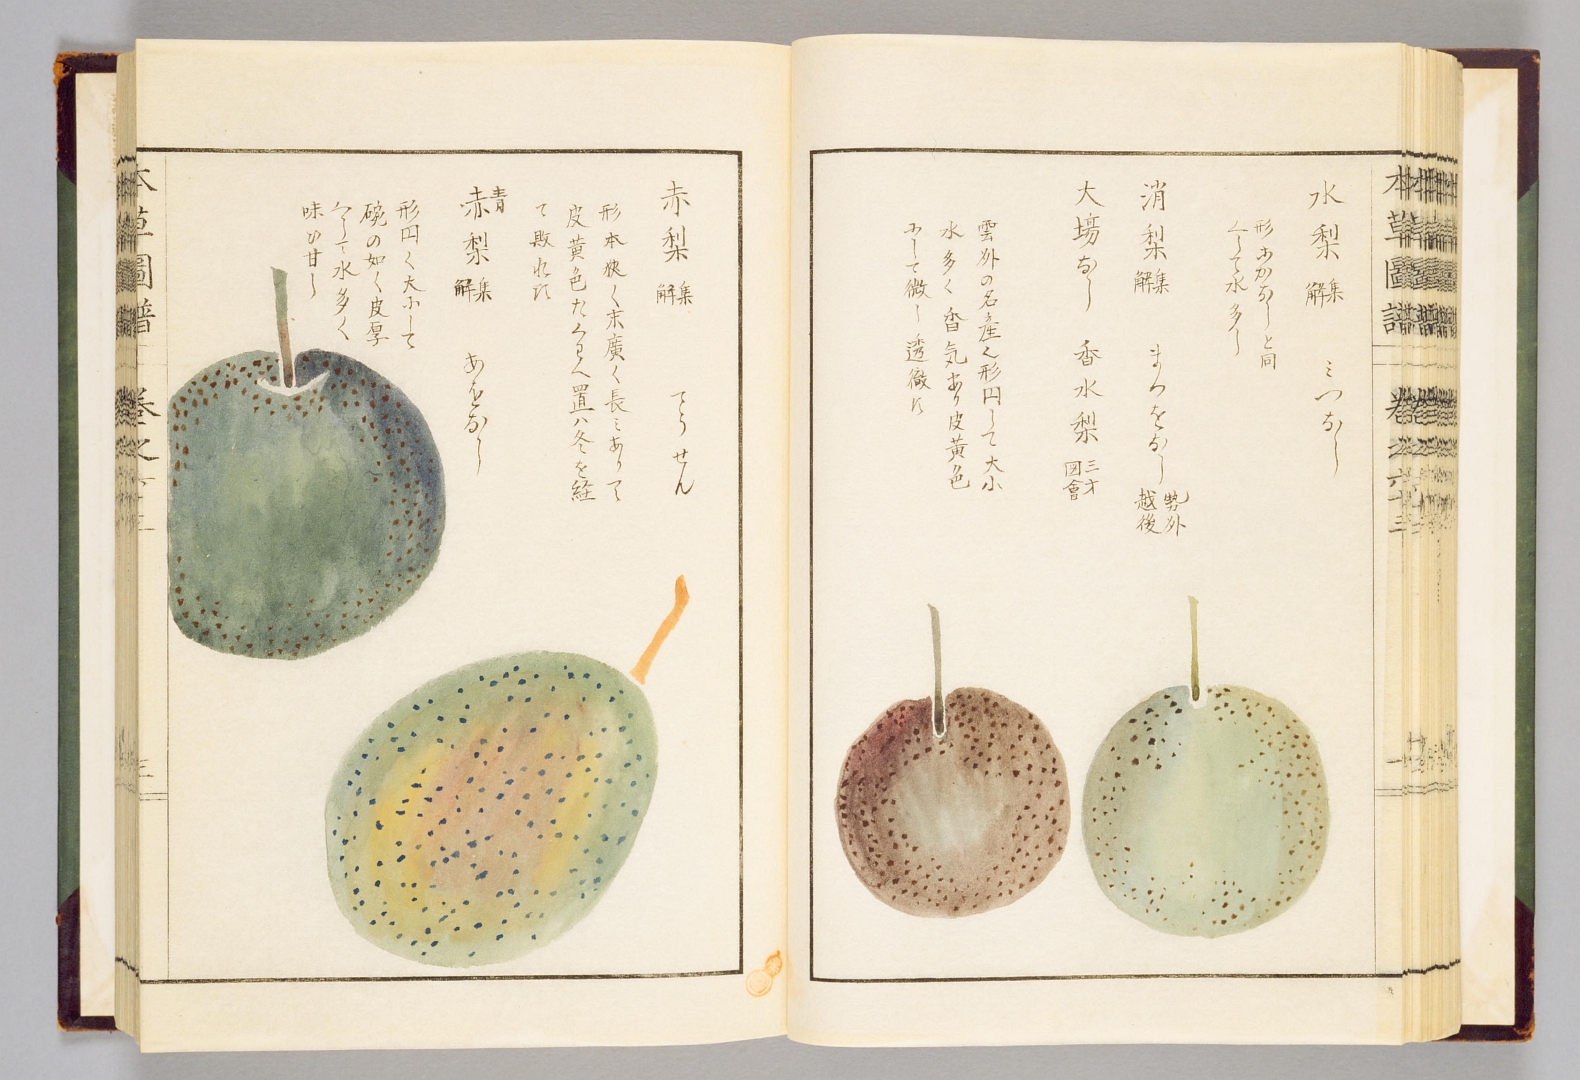 水梨 集解 みつなし
形あかなしと同
くして水多し
消梨 集解 まつをなし 勢州 越後
大塲なし 香水梨 三才圖會
雲州の名産く形円して大小
水多く香気あり皮黄色
にして微し透徹す
本草圖譜 卷之六十三
赤梨 集解 てうせん
形本狹く末廣く長ミありて
皮黄色たくわへ置ハ冬を経
て敗れす
青赤梨 集解 あをなし
形円く大にして
碗の如く皮厚
くして水多く
味ひ甘し
本草圖譜 卷之六十三 三